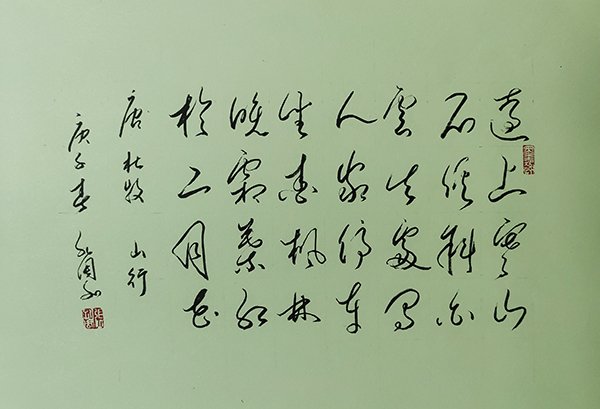 遠上寒山
石徑斜白
雲生處有
人家停車
坐愛楓林
晚霜葉紅
於二月花
唐 杜牧 山行
庚子春